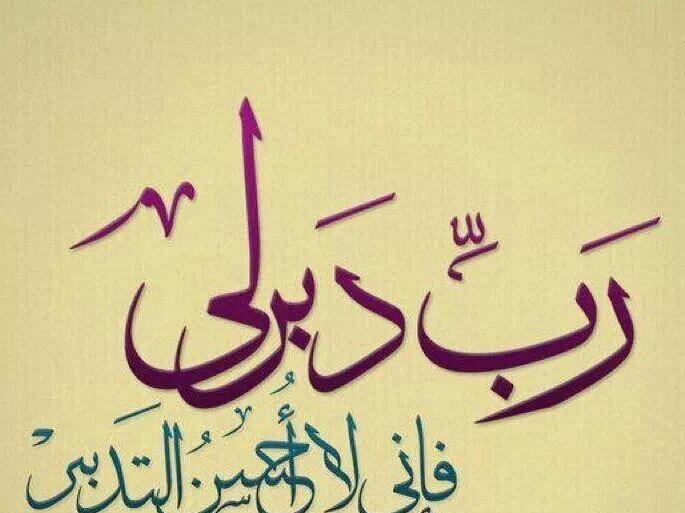 رَبِّ دَبِّر لي
فإني لا أُحسِنُ التَدبير